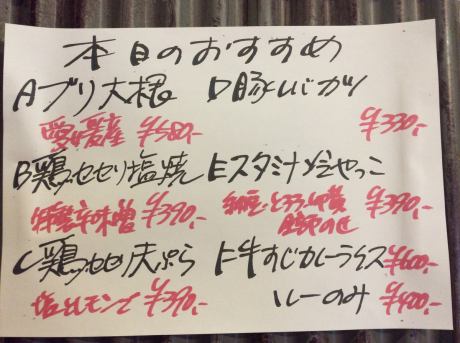 本日のおすすめ
Aブリ大根
愛媛産 ¥580,-
B鶏セセリ塩焼
辛味噌 ¥390,-
C鶏セセリ天ぷら
塩とレモンで ¥390,-
D豚レバカツ
¥330,-
Eスタミナ冷やっこ
納豆・とろろ・卵黄 ¥390,-
のせ
F牛すじカレーライス ¥600,-
ルーのみ ¥400,-